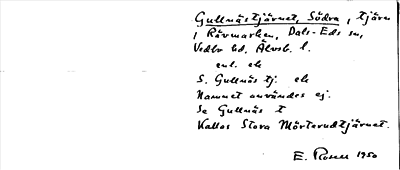 Gullnästjärnet, Södra, tjärn
i Rävmarken, Dals-Eds sn,
Vedbo hd, Älvsb. l.
enl. ek
S. Gullnäs tj. ek
Namnet användes ej.
Se Gullnäs t
Kallas Stora Mörterudtjärnet.
E. Rosell 1950